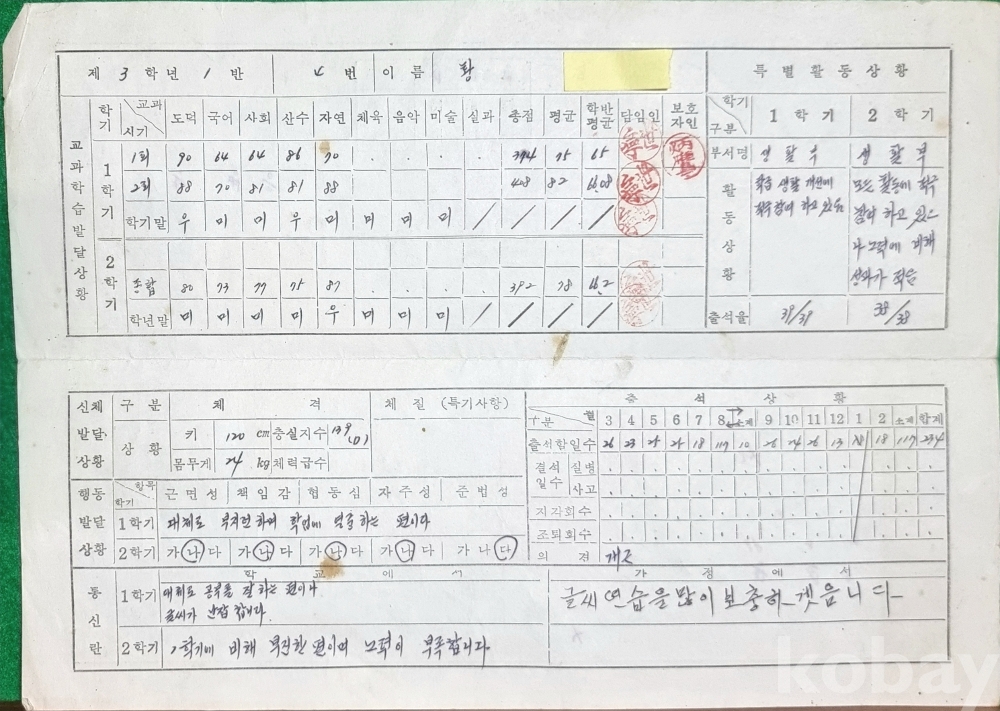 제 3 학년 1 반 4 번 이름 황
특별활동상황
교과학습발달상황
학기 교과 시기 도덕 국어 사회 산수 자연 체육 음악 미술 실과 총점 평균 학반평균 담임인 보호자인
1학기
1회 90 64 64 86 70 . . . . 374 75 65
2회 88 70 81 81 88 . . . . 408 82
학기말 우 미 미 우 미 미 미 미 / / / /
2학기
종합 80 73 77 75 87 . . . . 392 78
학년말 미 미 미 미 우 미 미 미 / / / /
학기 구분 1 학기 2 학기
부서명 생활부 생활부
활동상황
학급 생활 개선에
적극 참여 하고 있음
모든 활동에 적극
참여 하고 있으
나 노력에 비해
성과가 적음
출석율 39/39 38/38
신체발달상황
구분 체격 체질 (특기사항)
상황
키 120 cm 충실지수 139
몸무게 24 kg 체력급수
출석상황
구분 월 3 4 5 6 7 8 소계 9 10 11 12 1 2 소계 합계
출석할일수 26 23 25 24 18 119 10 26 24 26 13 18 117 234
결석일수 질병
사고
지각회수
조퇴회수
의견 개근
행동발달상황
학기 항목 근면성 책임감 협동심 자주성 준법성
1학기 대체로 부지런하며 학업에 열중 하는 편이다
2학기 가 나 다 가 나 다 가 나 다 가 나 다 가 나 다
통신란
학교에서
1학기 대체로 공부를 잘 하는 편이나
글씨가 난잡 합니다.
2학기 1학기에 비해 부진한 편이며 노력이 부족합니다
가정에서
글씨 연습을 많이 보충하겟음니다
kobay